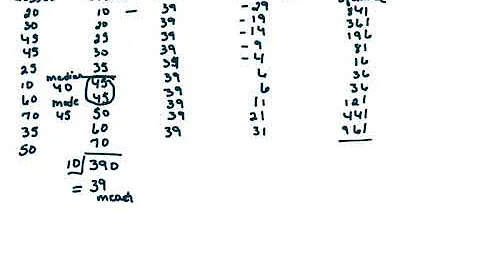 20 10 – 39 -29 841
30 20 39 -19 361
45 25 39 -14 196
45 30 39 -9 81
25 35 39 -4 16
median
10 40 45 39 6 36
60 mode 45 39 6 36
70 45 50 39 11 121
35 60 39 21 441
50 70 39 31 961
10 390
= 39
mean